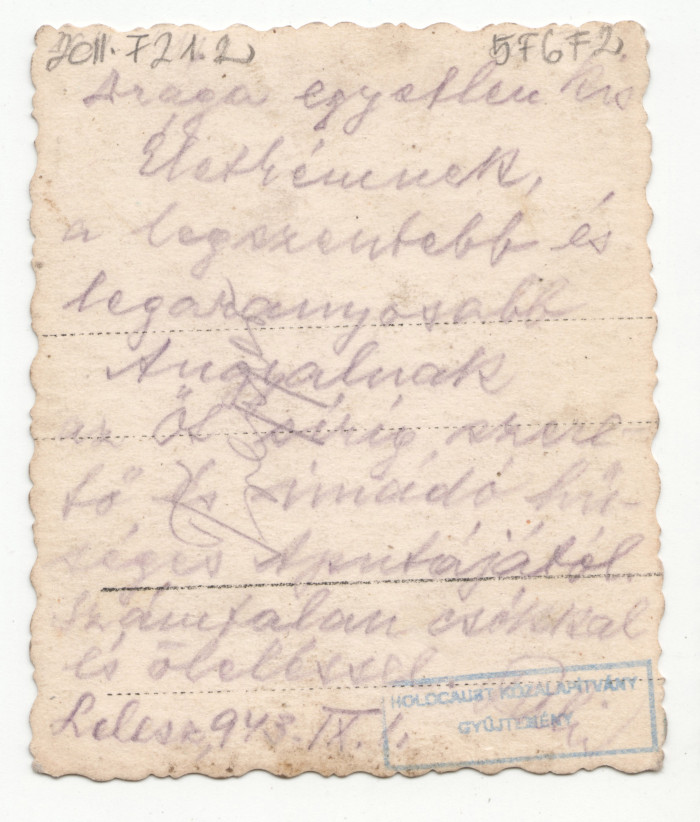 2011.721.2
5767.2
Drága egyetlen kis
Életkémnek,
a legszentebb és
legaranyosabb
Angyalnak
az Őt sírig szere-
tő és imádó hű-
séges Aputájától
számtalan csókkal
és öleléssel.
Lelesz, 943. IX. 1.
HOLOCAUST KÖZALAPÍTVÁNY
GYŰJTEMÉNY